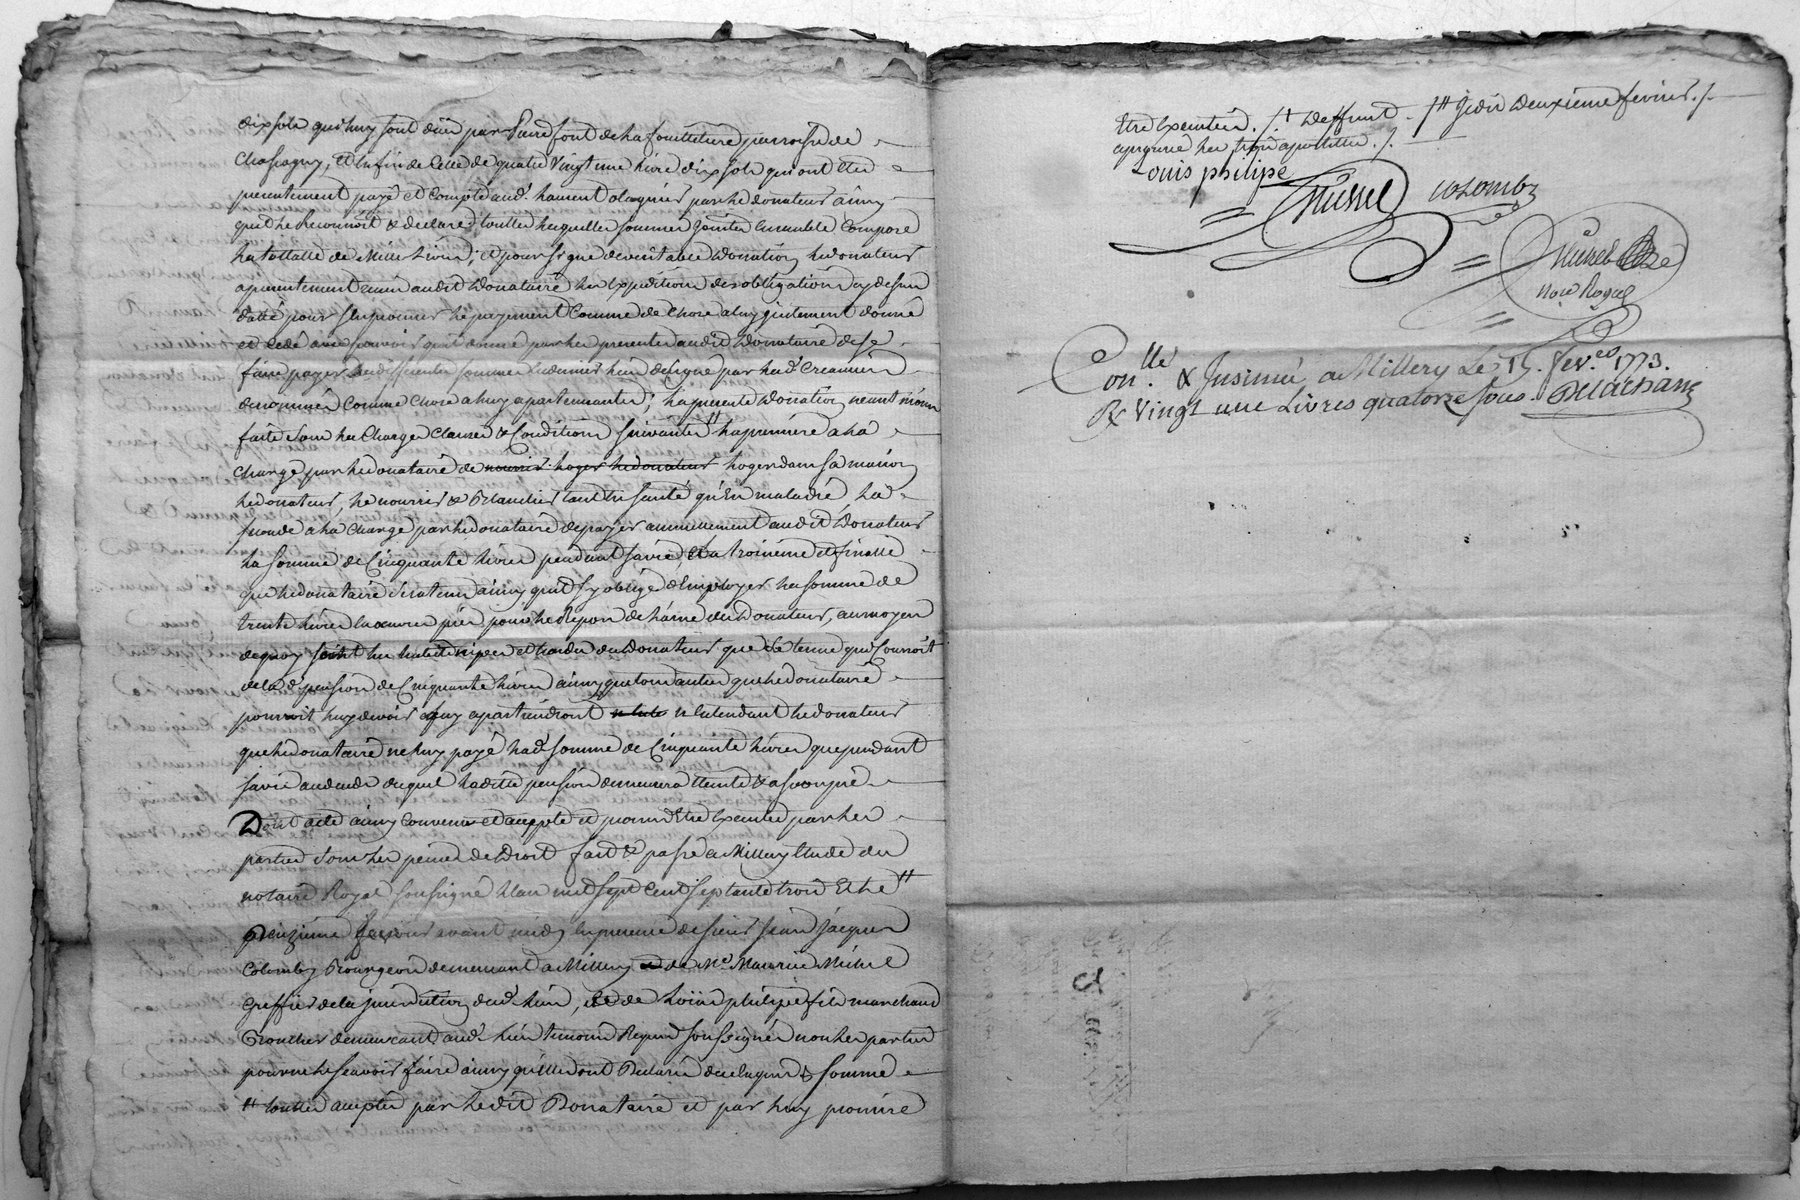 dix sols qui luy sont dûs par Pierre font de la fouilletiere parroisse de
Chassagny, et enfin de celle de quatre vingt une livre dix sols qui ont été
presentement payé et compté aud. haurent par le donateur ainsy
qu'il le reconnoit & declare, toutes lesquelles sommes jointes ensemble compose
la totalle de Mille Livres; et pour signe de veritable donation le donateur
a presentement remis audit donataire les expeditions des obligations cy dessus
datté pour s'en procurer le payement comme de chose a luy justement donné
et cedé avec pouvoir qu'il donne par les presentes audit donataire de se
faire payer des differentes sommes en deniers lieu designé par lad. creanciers
denommés comme chose a luy apartenantes; la presente donation neantmoins
faite sous les charges clauses & conditions suivantes " la premiere a la
charge par le donataire de nourrir loger le donateur loger dans sa maison
le donateur, le nourrir & blanchir tant en santé qu'en maladie la
seconde a la charge par le donataire de payer annuellement audit donateur
la somme de Cinquante livres pendant sa vie, et la troisieme et finalle
que le donataire sera tenu ainsy qu'il s'y oblige d'employer la somme de
trente livres en œuvres pies pour le repos de l'ame du donateur, au moyen
de quoy les habits nipes et hardes du donateur que le terme qui courroit
de la d. pension de Cinquante livres ainsy que tout autres que le donataire
pourroit luy devoir a luy apartiendront entendant le donateur
que le donataire ne luy paye lad. somme de Cinquante livres que pendant
sa vie audeces duquel ladite pension demeurera eteinte & assoupie
Dont acte ainsy convenu et accepté et promis être executé par les
parties sous les peines de droit fait & passé a Millery etude du
notaire Royal soussigné l'an mil sept cent septante trois et le "
quinzieme fevrier avant midy en presence de sieur Jean Jacques
Colomby Bourgeois demeurant a Millery de Me. Maurice Michel
greffier de la juridiction dud. lieu, et de Loüis philipe fils marchand
demeurant aud. lieu temoins Requis soussignés non les parties
pour ne le sçavoir faire ainsy qu'elles ont declaré de ce enquis & sommé
" toutes acceptés par ledit Donataire et par luy promise
être executés. /+ Deffunt. /" Jedis deuxieme fevrier. /.
aprouvé les trois apostilles. /.
Louis philipe
colomby
nore Royal
Con.llé & Insinué a Millery Le 15 fev.er 1773.
R Vingt une Livres quatorze sous